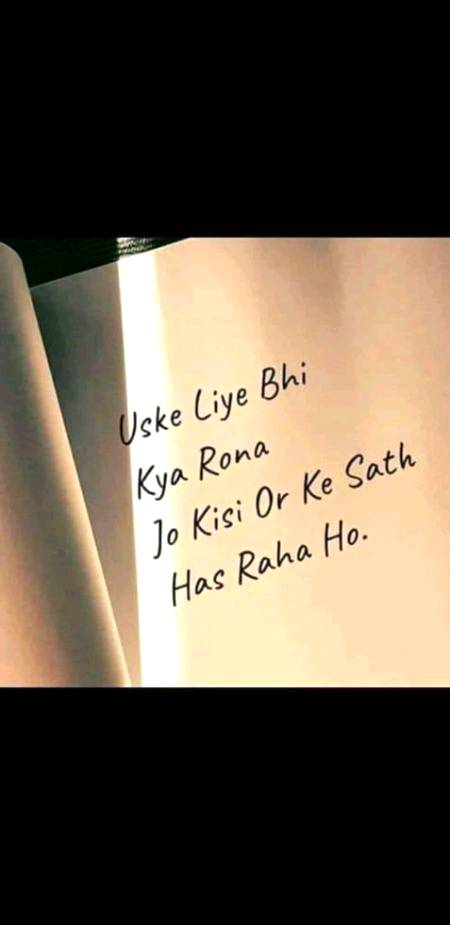 Uske Liye Bhi
Kya Rona
Jo Kisi Or Ke Sath
Has Raha Ho.